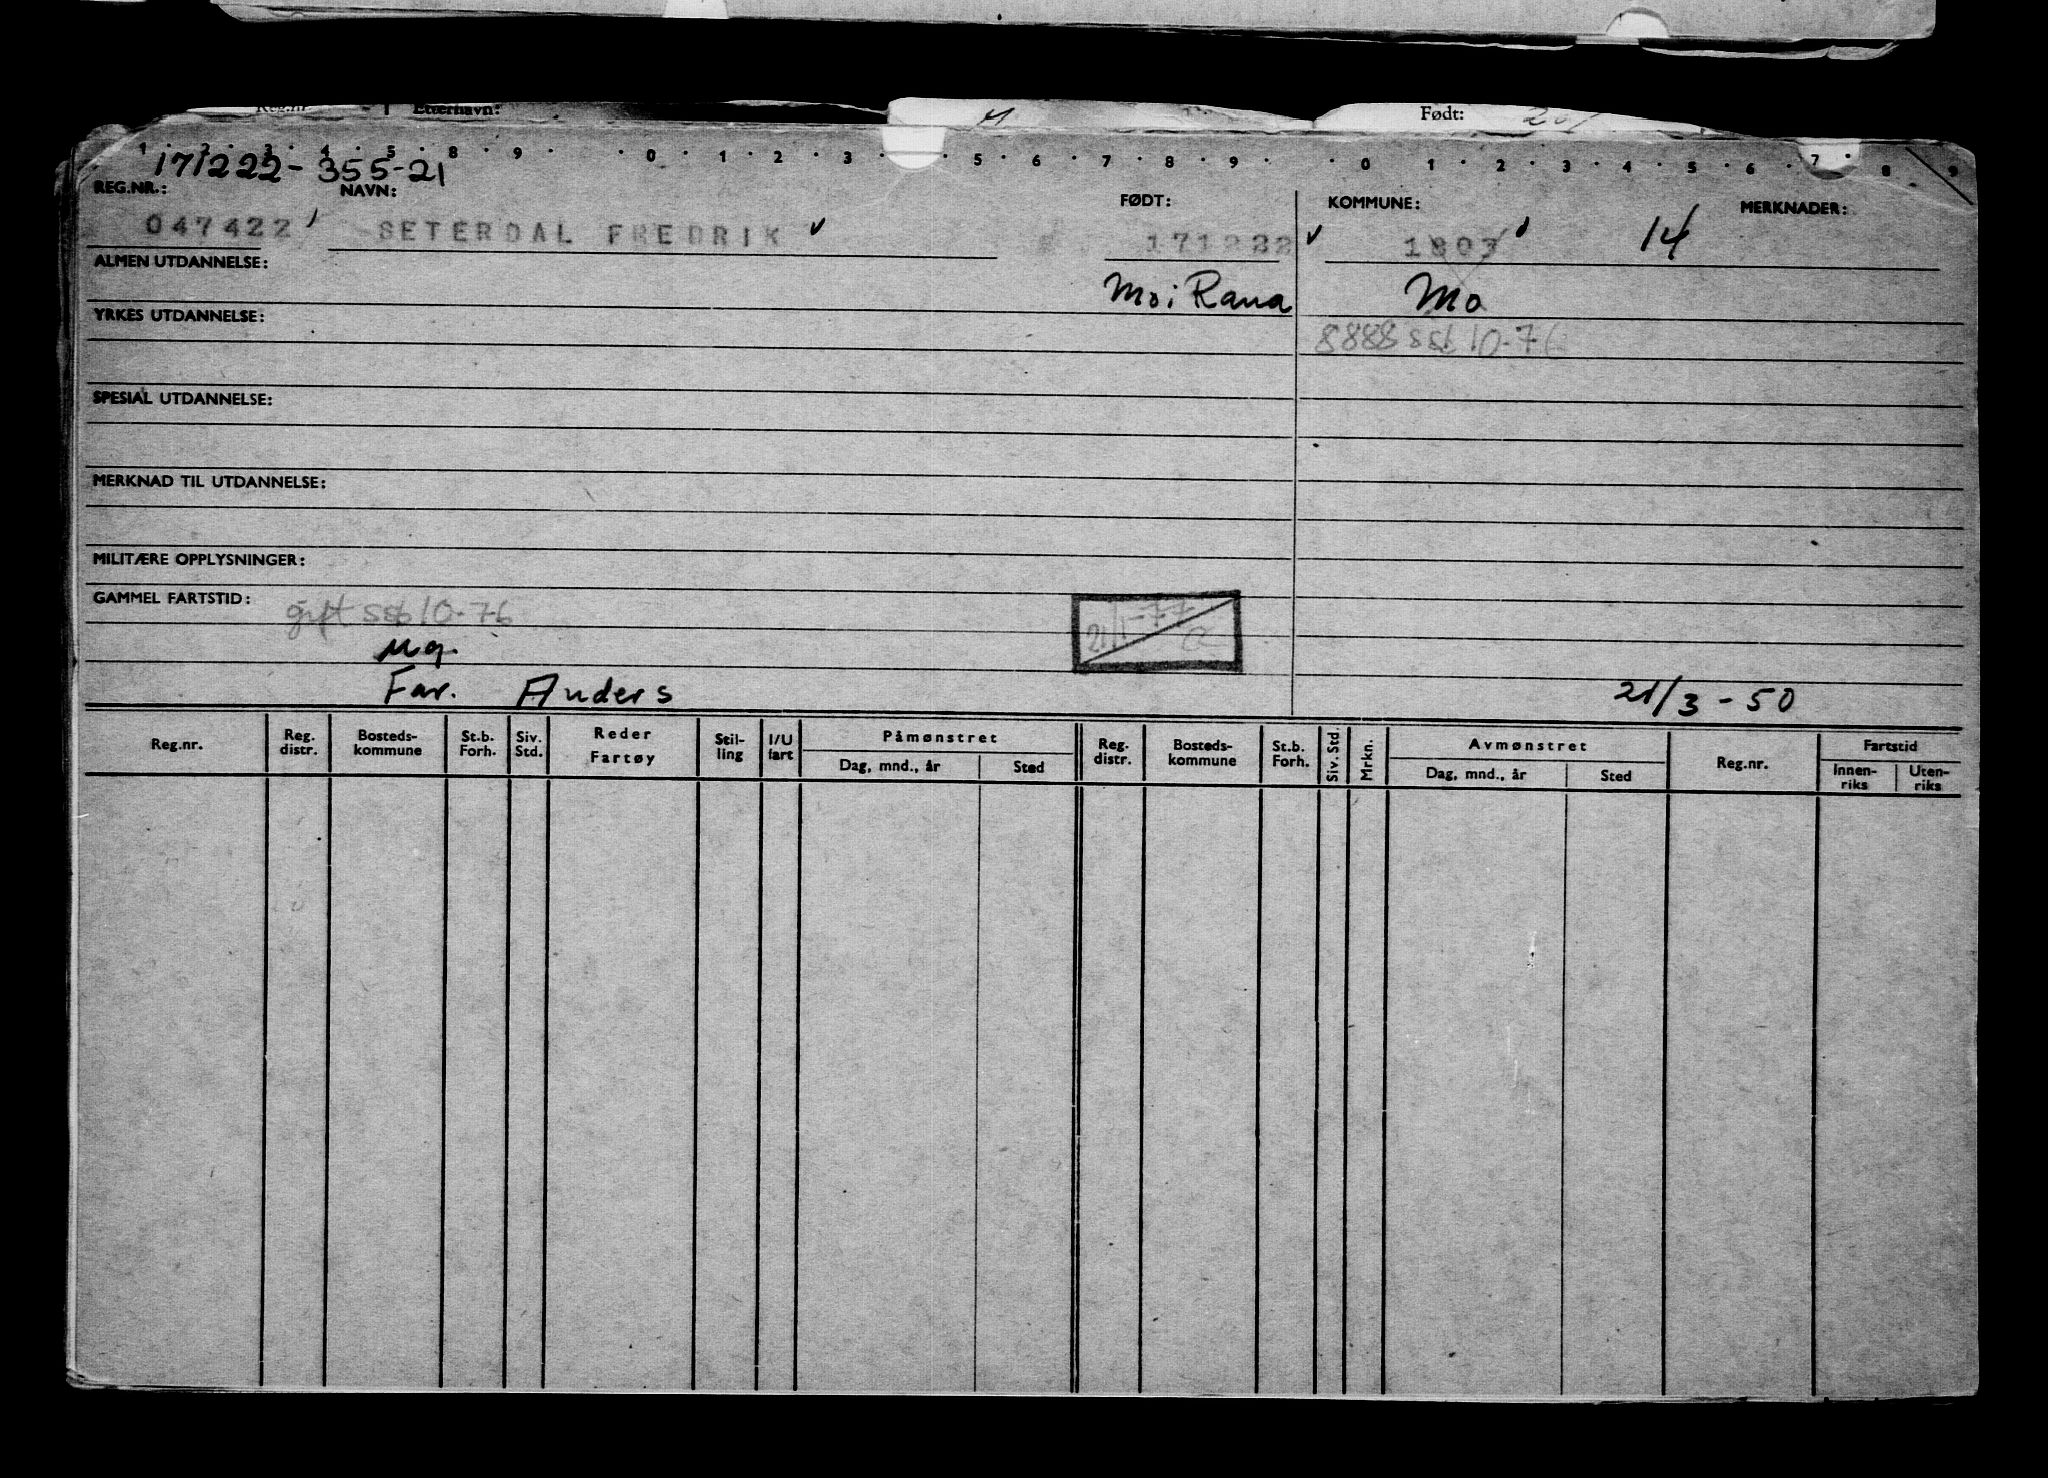 Etternavn:
Født:
1 2 3 4 5 8 9 0 1 2 3 5 6 7 8 9 0 1 2 3 4 5 6 7 8 9
171222-355-21
REG.NR.: NAVN: FØDT: KOMMUNE: MERKNADER:
047422 SETERDAL FREDRIK 171222 1803 14
ALMEN UTDANNELSE:
Mo i Rana Mo
YRKES UTDANNELSE:
8888 ssb 10-76
SPESIAL UTDANNELSE:
MERKNAD TIL UTDANNELSE:
MILITÆRE OPPLYSNINGER:
GAMMEL FARTSTID:
gift ssb 10-76
21/1-77
ug.
Far. Anders 21/3-50
Reg.nr. Reg. distr. Bosteds-kommune St.b. Forh. Siv. Std. Reder Fartøy Stil-ling I/U fart Påmønstret Dag, mnd., år Sted Reg. distr. Bosteds-kommune St.b. Forh. Siv. Std. Mrkn. Avmønstret Dag, mnd., år Sted Reg.nr. Fartstid Innen-riks Uten-riks